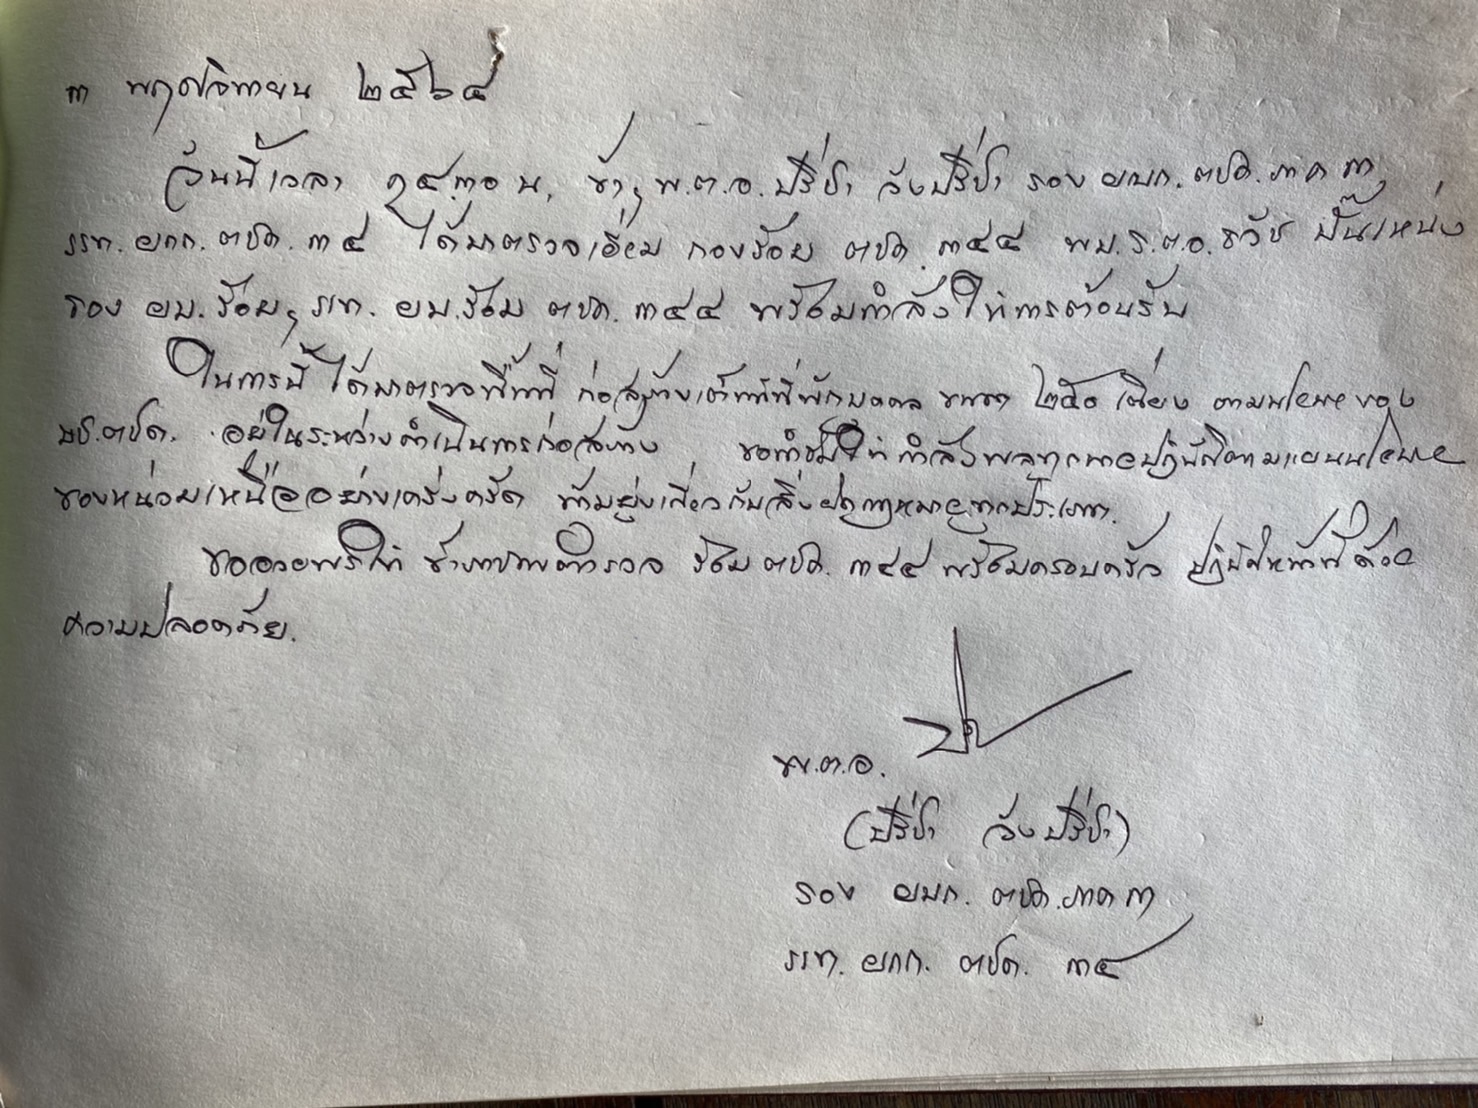 ๓ พฤศจิกายน ๒๕๖๔
วันนี้เวลา ๑๔๓๐ น. ข้าฯ พ.ต.อ. ปรีชา วังปรีชา รอง ผบก. ตชด. ภาค ๓,
รรท. ผกก. ตชด. ๓๔ ได้มาตรวจเยี่ยม กองร้อย ตชด. ๓๔๔ พบ ร.ต.อ. ธวัช ปั๊นเหน่ง
รอง ผบ. ร้อยฯ รรท. ผบ.ร้อย ตชด. ๓๔๔ พร้อมกำลังให้การต้อนรับ
ในการนี้ ได้มาตรวจพื้นที่ ก่อสร้าง ที่พักบุคคล ขนาด ๒๕๐ เตียง ตามนโยบายของ
ตชด. อยู่ในระหว่างดำเนินการก่อสร้าง ขอกำชับให้ กำลังพลทุกนายปฏิบัติตามแผนนโยบาย
ของหน่วยเหนืออย่างเคร่งครัด ห้ามยุ่งเกี่ยวกับสิ่งผิดกฎหมายทุกประเภท.
ขออวยพรให้ ข้าราชการตำรวจ ร้อย ตชด. ๓๔๔ พร้อมครอบครัว ปฏิบัติหน้าที่ด้วย
ความปลอดภัย.
พ.ต.อ.
(ปรีชา วังปรีชา)
รอง ผบก. ตชด. ภาค ๓
รรท. ผกก. ตชด. ๓๔